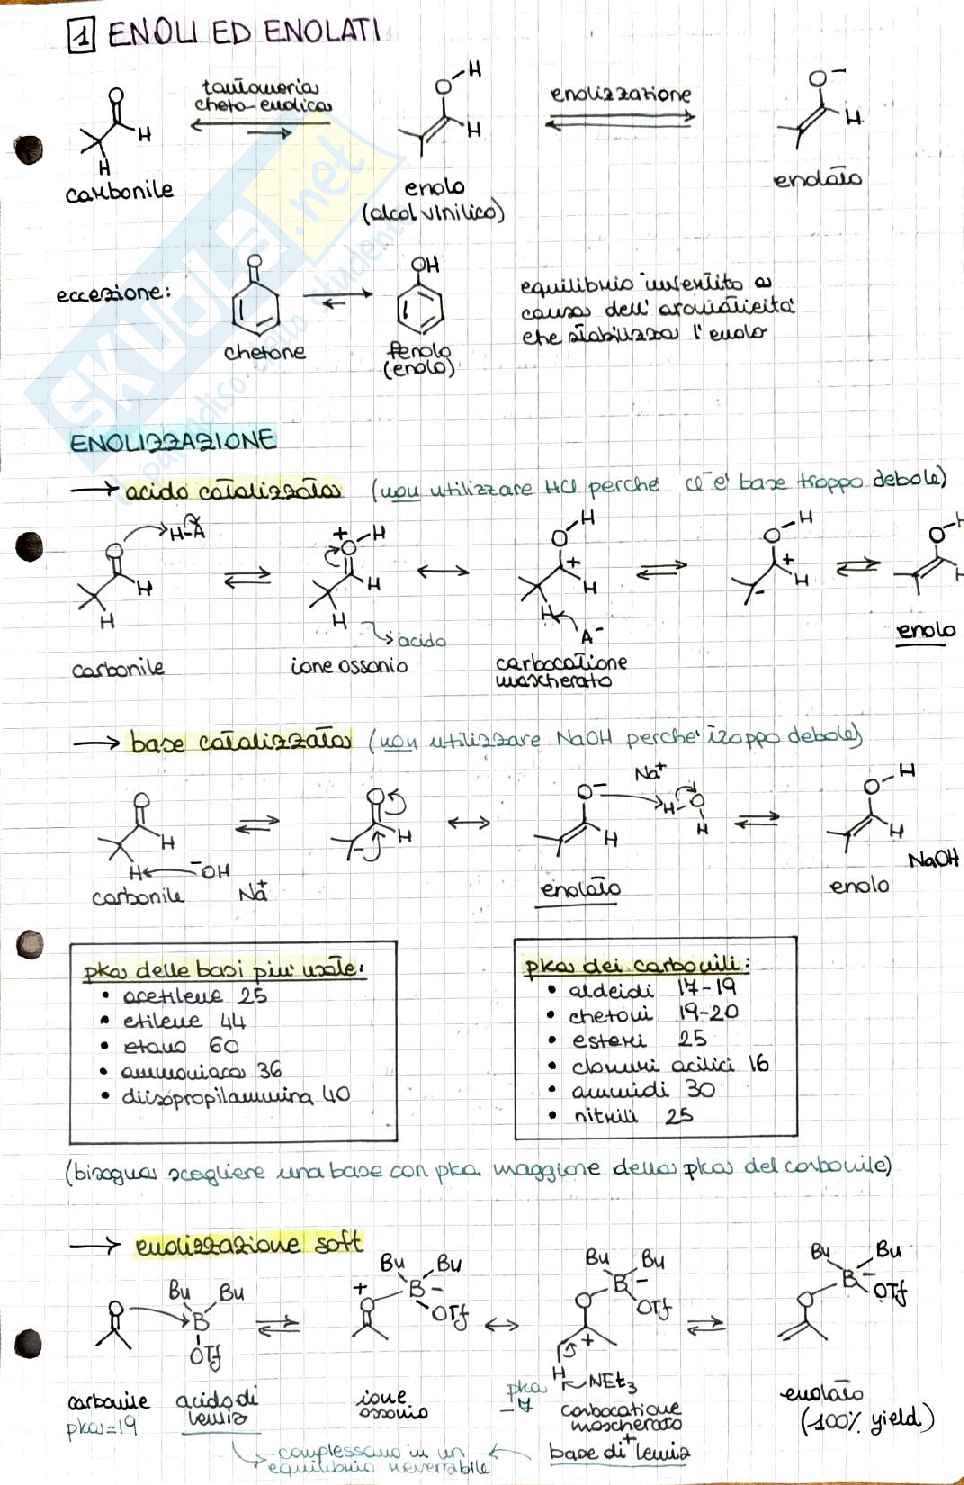 1 ENOLI ED ENOLATI
tautomeria
cheto-enolica
enolizzazione
O
H
H
O H
H
O-
H
carbonile
enolo
(alcol vinilico)
enolato
eccezione:
O
OH
chetone
fenolo
(enolo)
equilibrio invertito a
causa dell'aromaticità
che stabilizza l'enolo
SKUOLA.net
ENOLIZZAZIONE
→ acido catalizzata (non utilizzare HCl perché Cl⁻ è base troppo debole)
O H-A
H
H
+ O-H
H
H
acido
O-H
+
H
H
A-
O-H
+
H
-
O-H
H
carbonile
ione ossonio
carbocatione
mascherato
enolo
→ base catalizzata (non utilizzare NaOH perché troppo debole)
O
H
H
-OH
Na+
O
H
-
O-
H
Na+
H-O
H
O-H
H
NaOH
carbonile
enolato
enolo
pka delle basi più usate:
• acetilene 25
• etilene 44
• etano 60
• ammoniaca 36
• diisopropilammina 40
pka dei carbonili:
• aldeidi 17-19
• chetoni 19-20
• esteri 25
• cloruri acilici 16
• ammidi 30
• nitrili 25
(bisogna scegliere una base con pka maggiore della pka del carbonile)
→ enolizzazione soft
O
Bu Bu
B
OTf
Bu Bu
+ B-
O OTf
Bu Bu
B-
O OTf
+
H
NEt3
Bu Bu
B-
O OTf
carbonile
pka=19
acido di
lewis
ione
ossonio
pka
-7
carbocatione
mascherato
+
base di lewis
enolato
(100% yield)
complessano in un
equilibrio reversibile